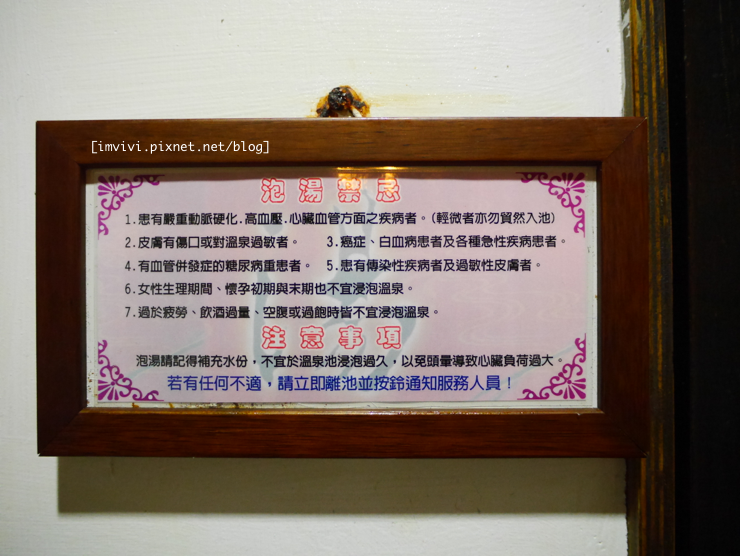 [imvivi.pixnet.net/blog]
泡湯禁忌
1.患有嚴重動脈硬化.高血壓.心臟血管方面之疾病者。(輕微者亦勿貿然入池)
2.皮膚有傷口或對溫泉過敏者。 3.癌症、白血病患者及各種急性疾病患者。
4.有血管併發症的糖尿病重患者。 5.患有傳染性疾病者及過敏性皮膚者。
6.女性生理期間、懷孕初期與末期也不宜浸泡溫泉。
7.過於疲勞、飲酒過量、空腹或過飽時皆不宜浸泡溫泉。
注意事項
泡湯請記得補充水份，不宜於溫泉池浸泡過久，以免頭暈導致心臟負荷過大。
若有任何不適，請立即離池並按鈴通知服務人員！